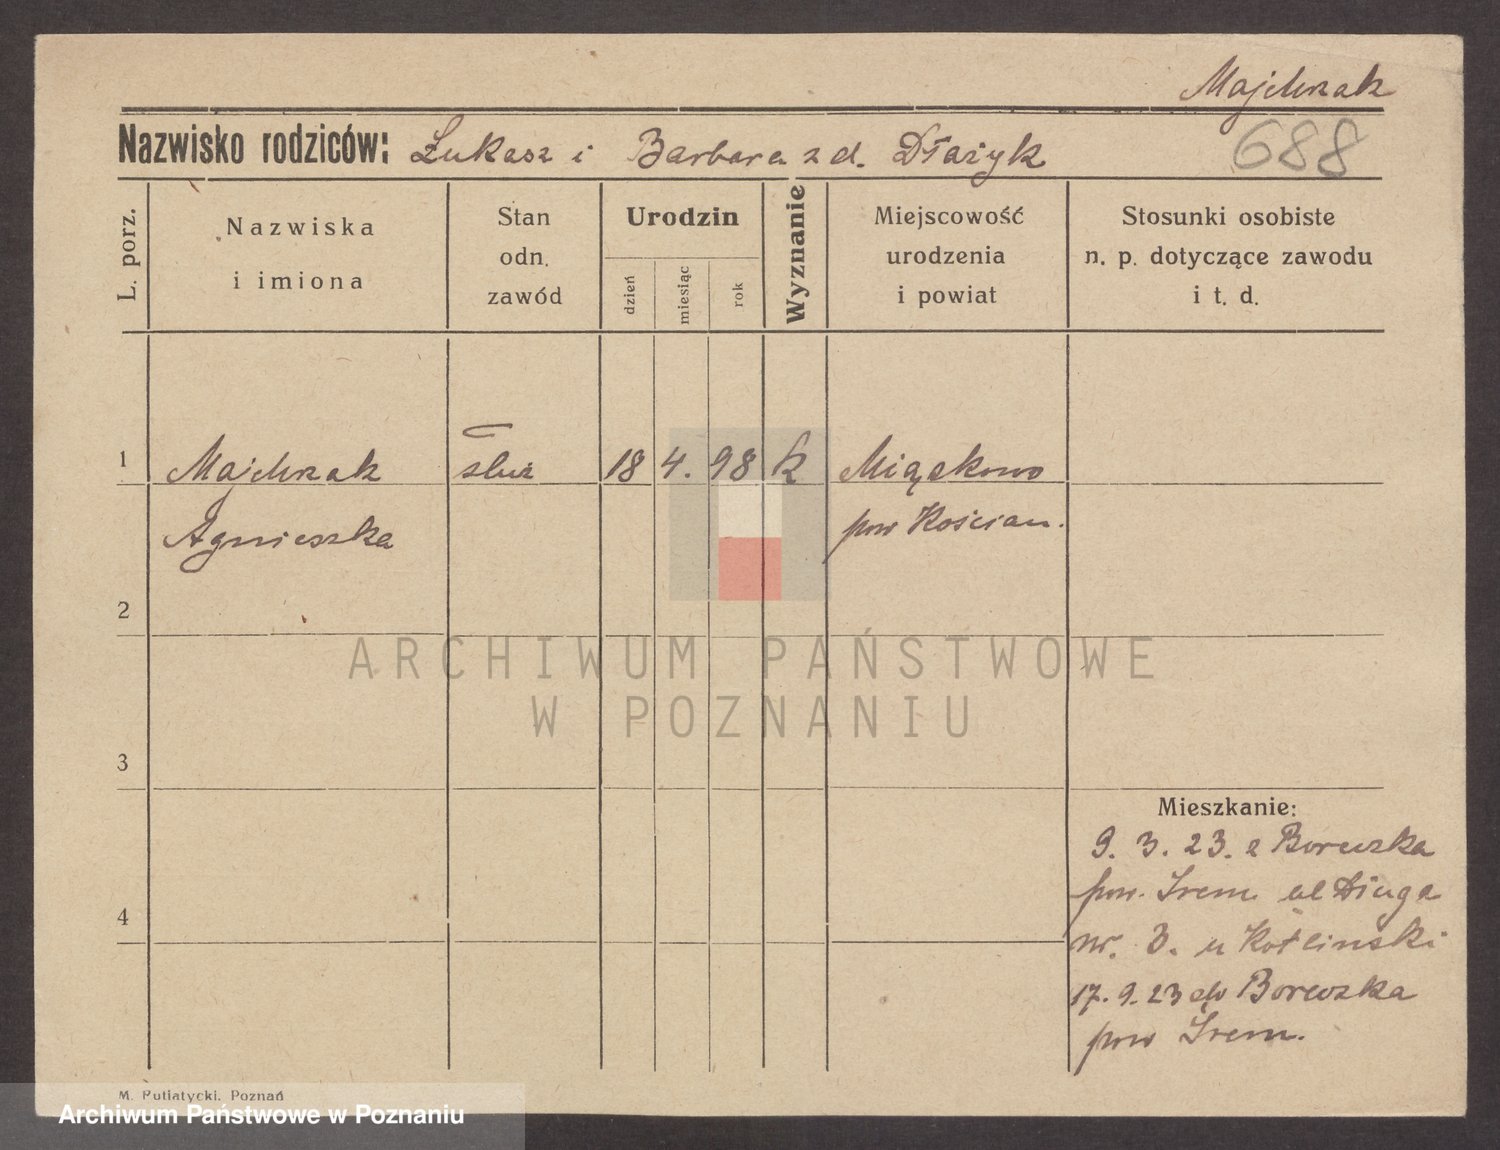 Majchrzak
688
Nazwisko rodziców: Łukasz i Barbara z d. Dłażyk
L. porz.
Nazwiska
i imiona
Stan
odn.
zawód
Urodzin
dzień
miesiąc
rok
Wyznanie
Miejscowość
urodzenia
i powiat
Stosunki osobiste
n. p. dotyczące zawodu
i t. d.
1 Majchrzak służ 18 4. 98 k Miąskowo
Agnieszka pow Kościan.
2
ARCHIWUM PAŃSTWOWE
W POZNANIU
3
Mieszkanie:
9. 3. 23. z
pow. Śrem ul Długa
4
nr. 3. u Kotliński
17. 9. 23 do
pow Śrem.
M. Putiatycki, Poznań
Archiwum Państwowe w Poznaniu